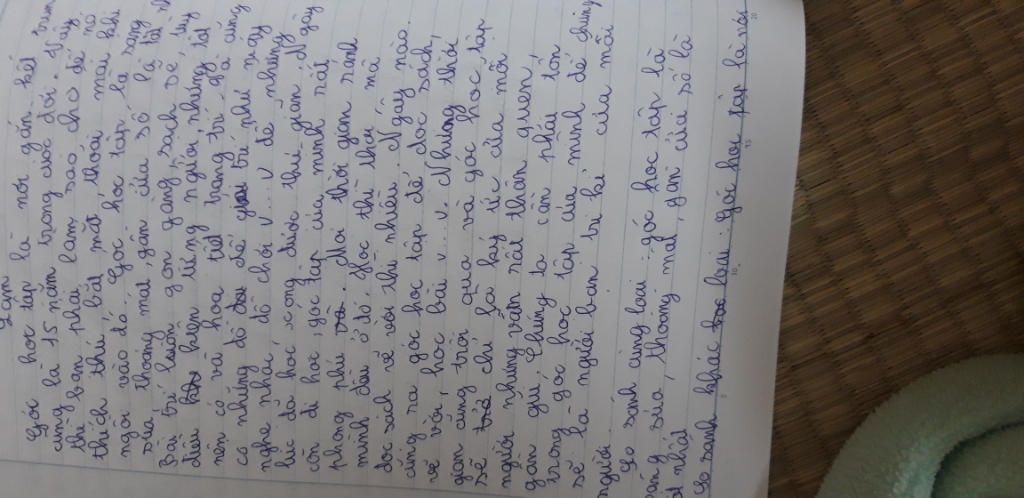 Làm
Góc học tập là nơi gắn kết
cũng là 15 năm trong cuộc đời. Vậy
thì bạn phải làm sao cho để nó
thích thú, bắt mắt, thoải mái khi
ngồi vào đó. Góc học tập là sáng
sủa, thoáng mát, gần cửa sổ là tốt
Bài trí luôn gọn gàng, sạch sẽ, tùy
điều kiện từng người, những
nên có vài họa tiết trang trí, và cũng
có những đồ để bù trừ như máy
nghe nhạc, đồ chơi v...v để những
lúc đã học xong được thư giãn. Ngày
còn đi học, góc tập của mình rất
phong phú. Nơi thời gian rảnh
mình đều ở đó. Học thì thời mà
đọc sách vẽ vời thì nhiều. Ngày nào
cũng ra góc học tập để đọc sách,
vẽ vời, học bài v...v. Nhưng thời
gian cũng trôi qua và góc học tập
sẽ chỉ là ký ức của mỗi
người nhưng vẫn rất thân quen,
gần gũi. Chúng ta cần phải tôn
trọng góc học tập của mình để chúng
sẽ là người bạn tri kỉ của mỗi
người.
So sánh cùng loại: góc học tập là
sáng sủa, thoáng mát, gần cửa sổ là
tốt nhất
So sánh khác loại: Góc học tập là nơi